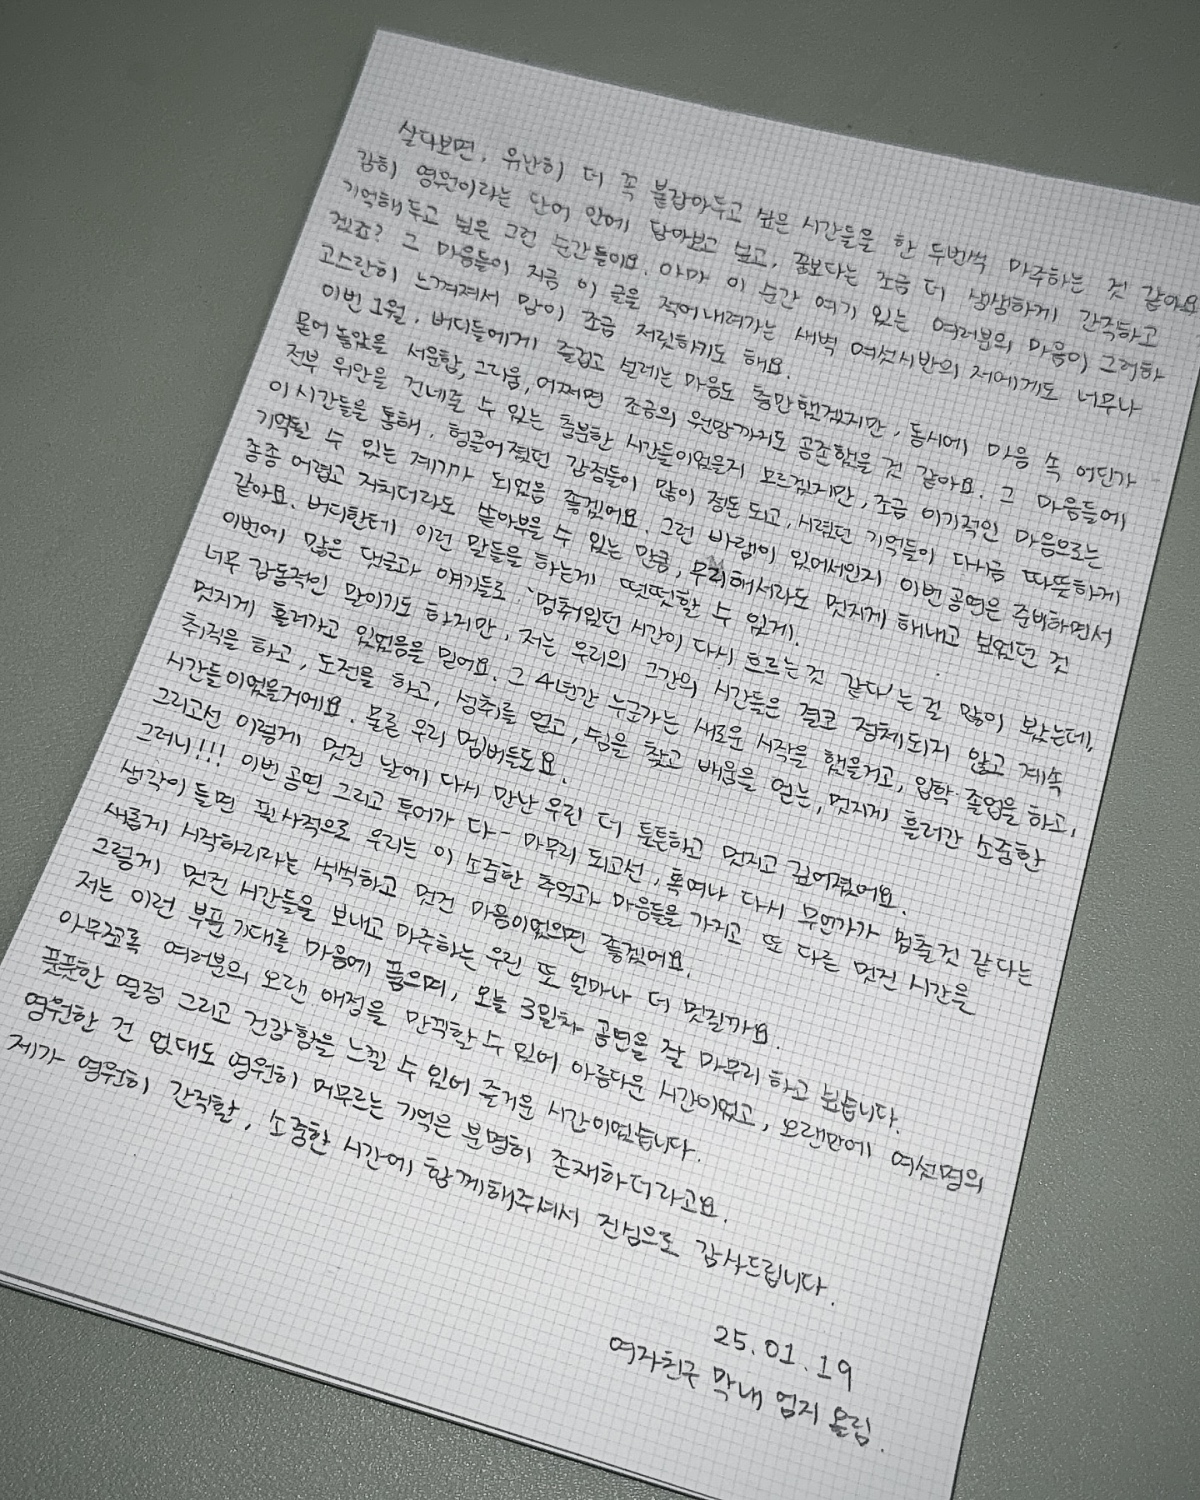 살다보면, 유난히 더 꼭 붙잡아두고 싶은 시간들을 한 두번씩 마주하는 것 같아요
감히 영원이라는 단어 안에 담아보고 싶고, 꿈보다는 조금 더 생생하게 간직하고
기억해 두고 싶은 그런 순간들이요. 아마 이 순간 여기 있는 여러분의 마음이 그러하
겠죠? 그 마음들이 지금 이 글을 적어내려가는 새벽 여섯시반의 저에게도 너무나
고스란히 느껴져서 맘이 조금 저릿하기도 해요.
이번 1월, 버디들에게 즐겁고 설레는 마음도 충만했겠지만, 동시에 마음 속 어딘가
묻어 놓았을 서운함, 그리움, 어쩌면 조금의 원망까지도 공존했을 것 같아요. 그 마음들에
전부 위안을 건네줄 수 있는 충분한 시간들이었을지 모르겠지만, 조금 이기적인 마음으로는
이 시간들을 통해, 헝클어졌던 감정들이 많이 정돈 되고, 시렸던 기억들이 다시금 따뜻하게
기억될 수 있는 계기가 되었음 좋겠어요. 그런 바램이 있어서인지 이번 공연은 준비하면서
종종 어렵고 지치더라도 쏟아부을 수 있는 만큼, 무리해서라도 멋지게 해내고 싶었던 것
같아요. 버디한테 이런 말들을 하는게 떳떳할 수 있게!
이번에 많은 댓글과 얘기들로 '멈춰있던 시간이 다시 흐르는 것 같다'는 걸 많이 봤는데,
너무 감동적인 말이기도 하지만, 저는 우리의 그간의 시간들은 결코 정체되지 않고 계속
멋지게 흘러가고 있었음을 믿어요. 그 4년간 누군가는 새로운 시작을 했을거고, 입학·졸업을 하고,
취직을 하고, 도전을 하고, 성취를 얻고, 쉼을 찾고 배움을 얻는, 멋지게 흘러간 소중한
시간들이었을거에요. 물론 우리 멤버들도요.
그리고선 이렇게 멋진 날에 다시 만난 우린 더 튼튼하고 멋지고 깊어졌어요.
그러니!!! 이번 공연 그리고 투어가 다- 마무리 되고선, 혹여나 다시 무언가가 멈출것 같다는
생각이 들면 필사적으로 우리는 이 소중한 추억과 마음들을 가지고 또 다른 멋진 시간을
새롭게 시작하리라는 씩씩하고 멋진 마음이었으면 좋겠어요.
그렇게 멋진 시간들을 보내고 마주하는 우린 또 얼마나 더 멋질까요.
저는 이런 부푼 기대를 마음에 품으며, 오늘 3일차 공연을 잘 마무리 하고 싶습니다.
아무쪼록 여러분의 오랜 애정을 만끽할 수 있어 아름다운 시간이었고, 오랜만에 여섯명의
풋풋한 열정 그리고 건강함을 느낄 수 있어 즐거운 시간이었습니다.
영원한 건 없대도 영원히 머무르는 기억은 분명히 존재하더라고요.
제가 영원히 간직할, 소중한 시간에 함께해주셔서 진심으로 감사드립니다.
25.01.19
여자친구 막내 엄지 올림.